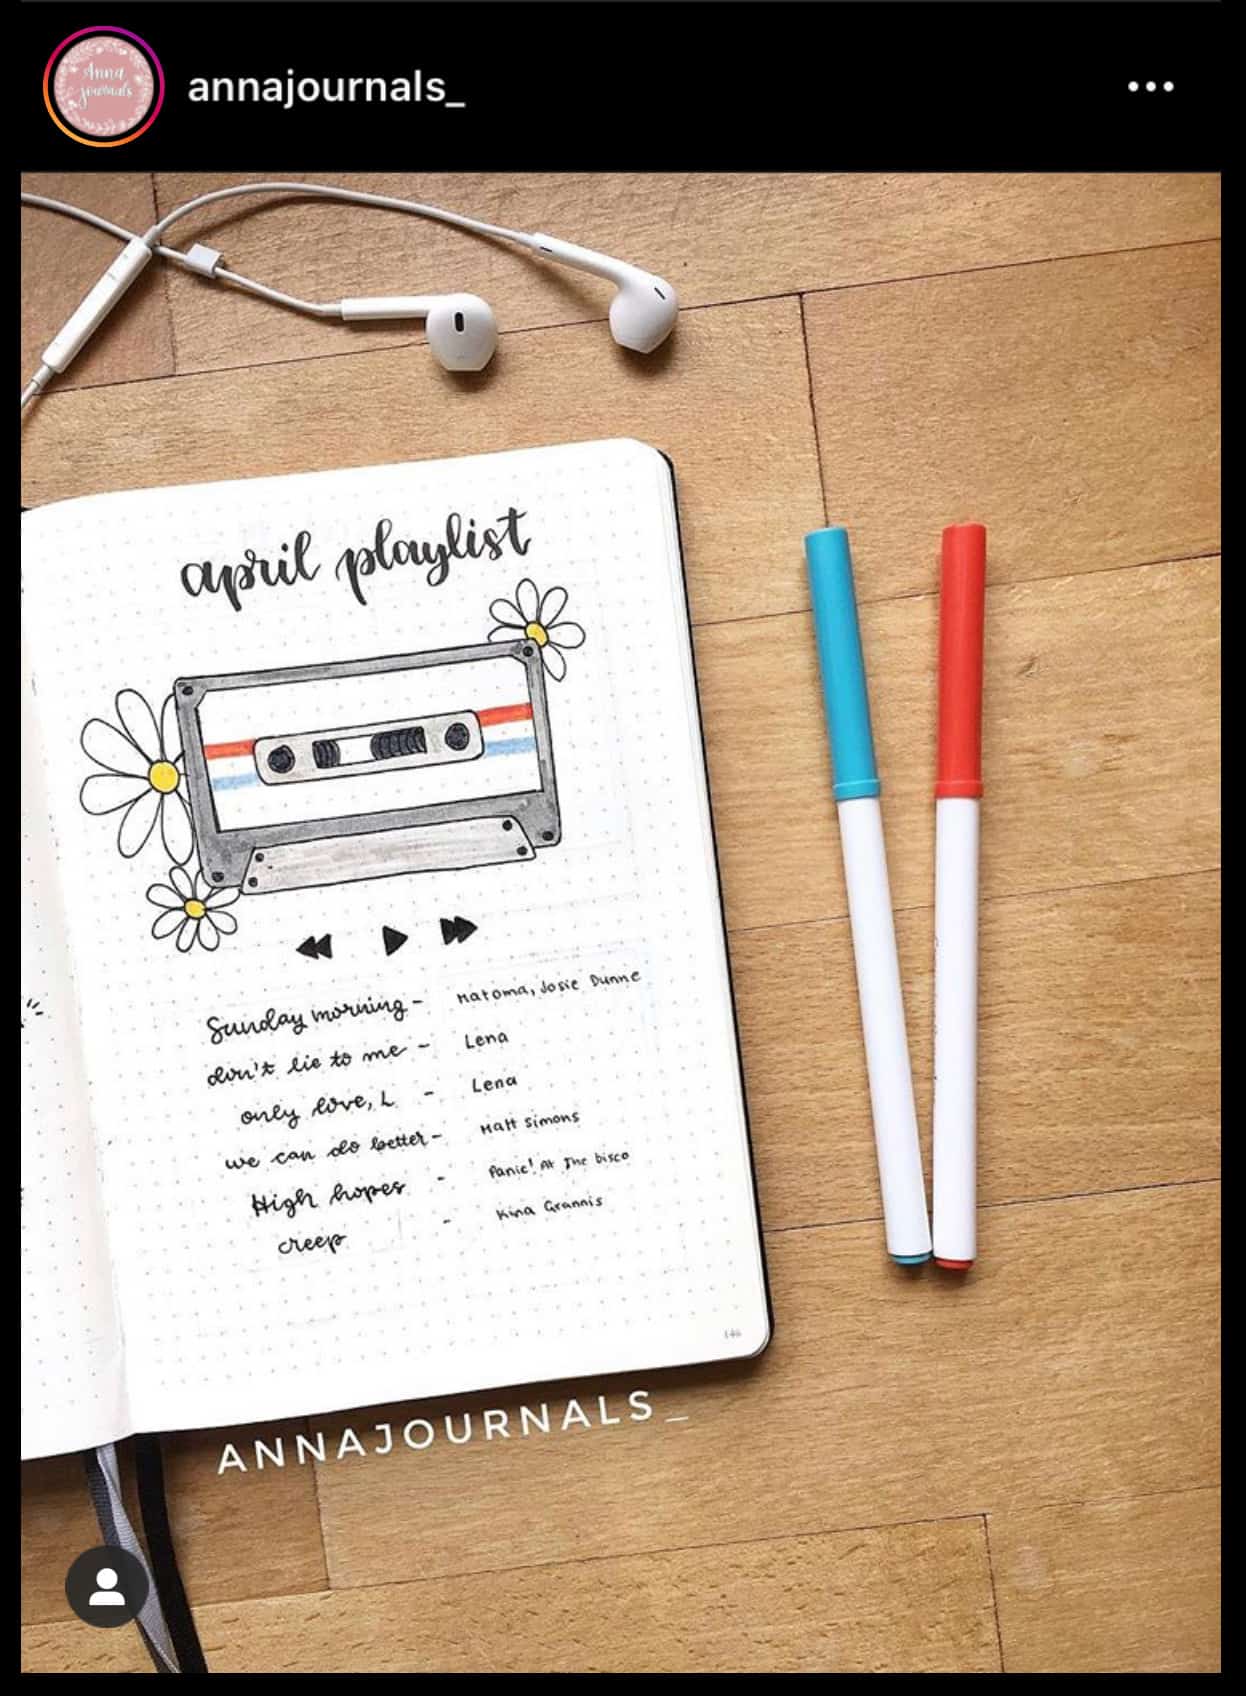 Anna
journals
annajournals_
april playlist
Sunday morning - Matoma, Josie Dunne
don't lie to me - Lena
only love, L - Lena
we can do better - Matt Simons
High hopes - Panic! At The Disco
creep - Kina Grannis
146
ANNAJOURNALS_